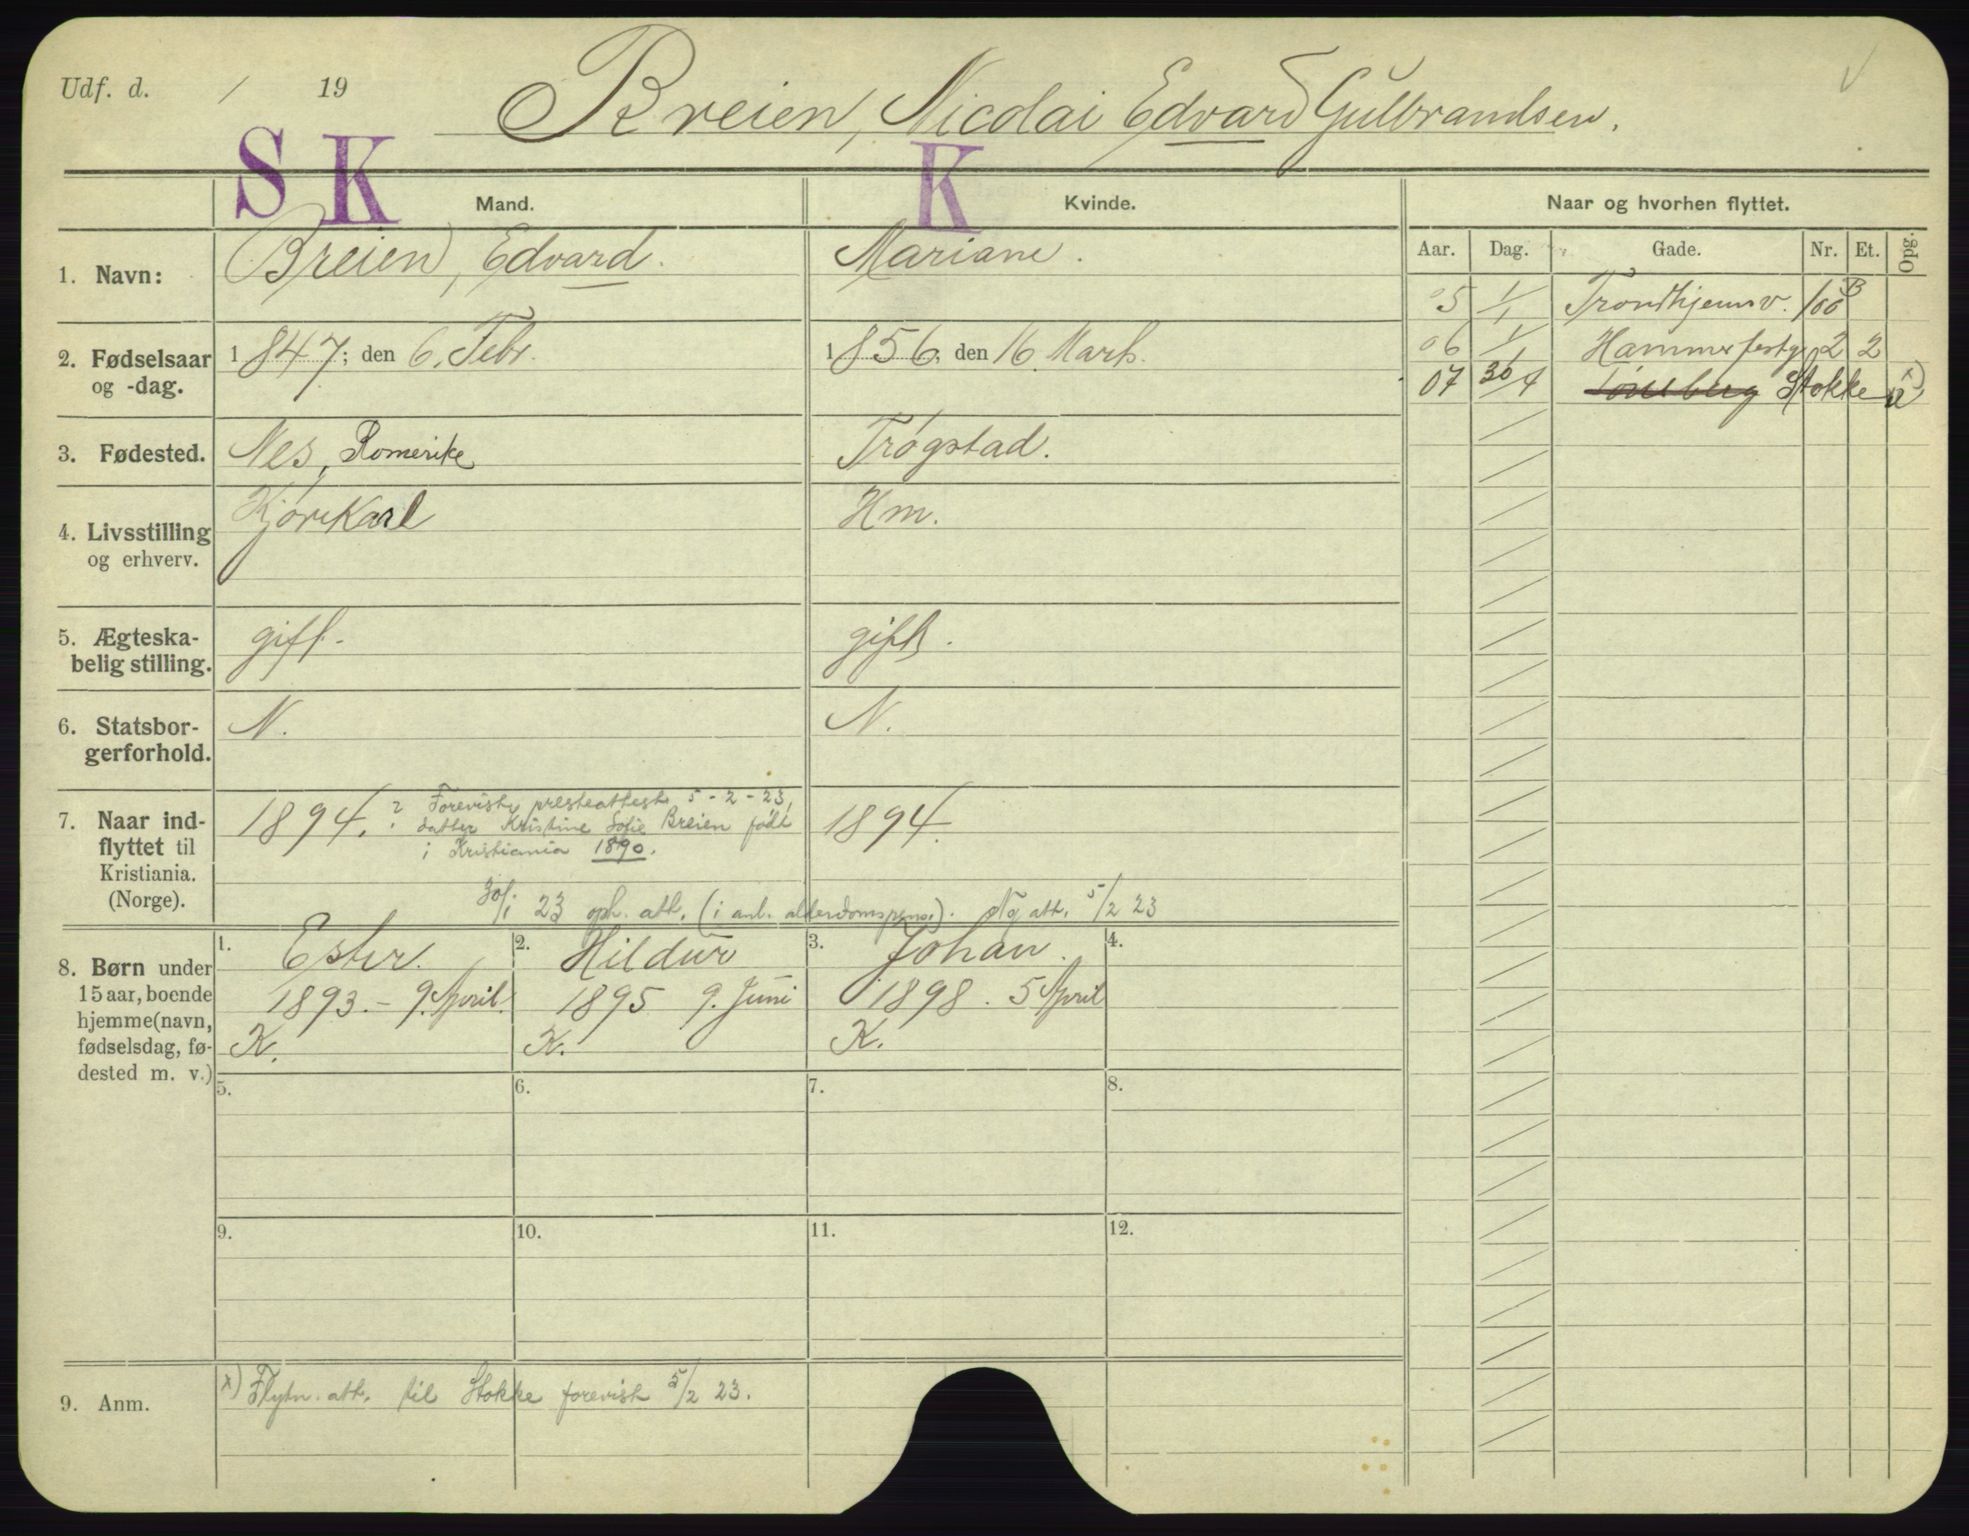 Udf. d. / 19
Breien, Nicolai Edvard Gulbrandsen.
S K K
Mand. Kvinde. Naar og hvorhen flyttet.
Aar. Dag. Gade. Nr. Et. Opg.
1. Navn: Breien, Edvard. Mariane.
05 1/1 Trondhjemsv. 100 B
2. Fødselsaar og -dag. 1847; den 6. Febr. 1856, den 16. Marts.
06 1/1 Hammerfestg. 2 2
07 30/4 Tønsberg Stokke x)
3. Fødested. Nes, Romerike Trøgstad.
4. Livsstilling og erhverv. Kjørekarl Hm.
5. Ægteska-
belig stilling. gift. gift.
6. Statsbor-
gerforhold. N. N.
7. Naar ind-
flyttet til
Kristiania.
(Norge).
1894. ? Forevist presteattest 5-2-23,
datter Kristine Sofie Breien født
i Kristiania 1890.
1894
30/1 23 oph. att. (i anl. alderdomspens.). Ny att. 5/2 23
8. Børn under
15 aar, boende
hjemme (navn,
fødselsdag, fø-
dested m. v.)
1. Ester. 2. Hildur 3. Johan. 4.
1893 - 9. April. 1895 9. Juni 1898. 5 April
K. K. K.
5. 6. 7. 8.
9. 10. 11. 12.
9. Anm. x) Flytn. att. til Stokke forevist 5/2 23.